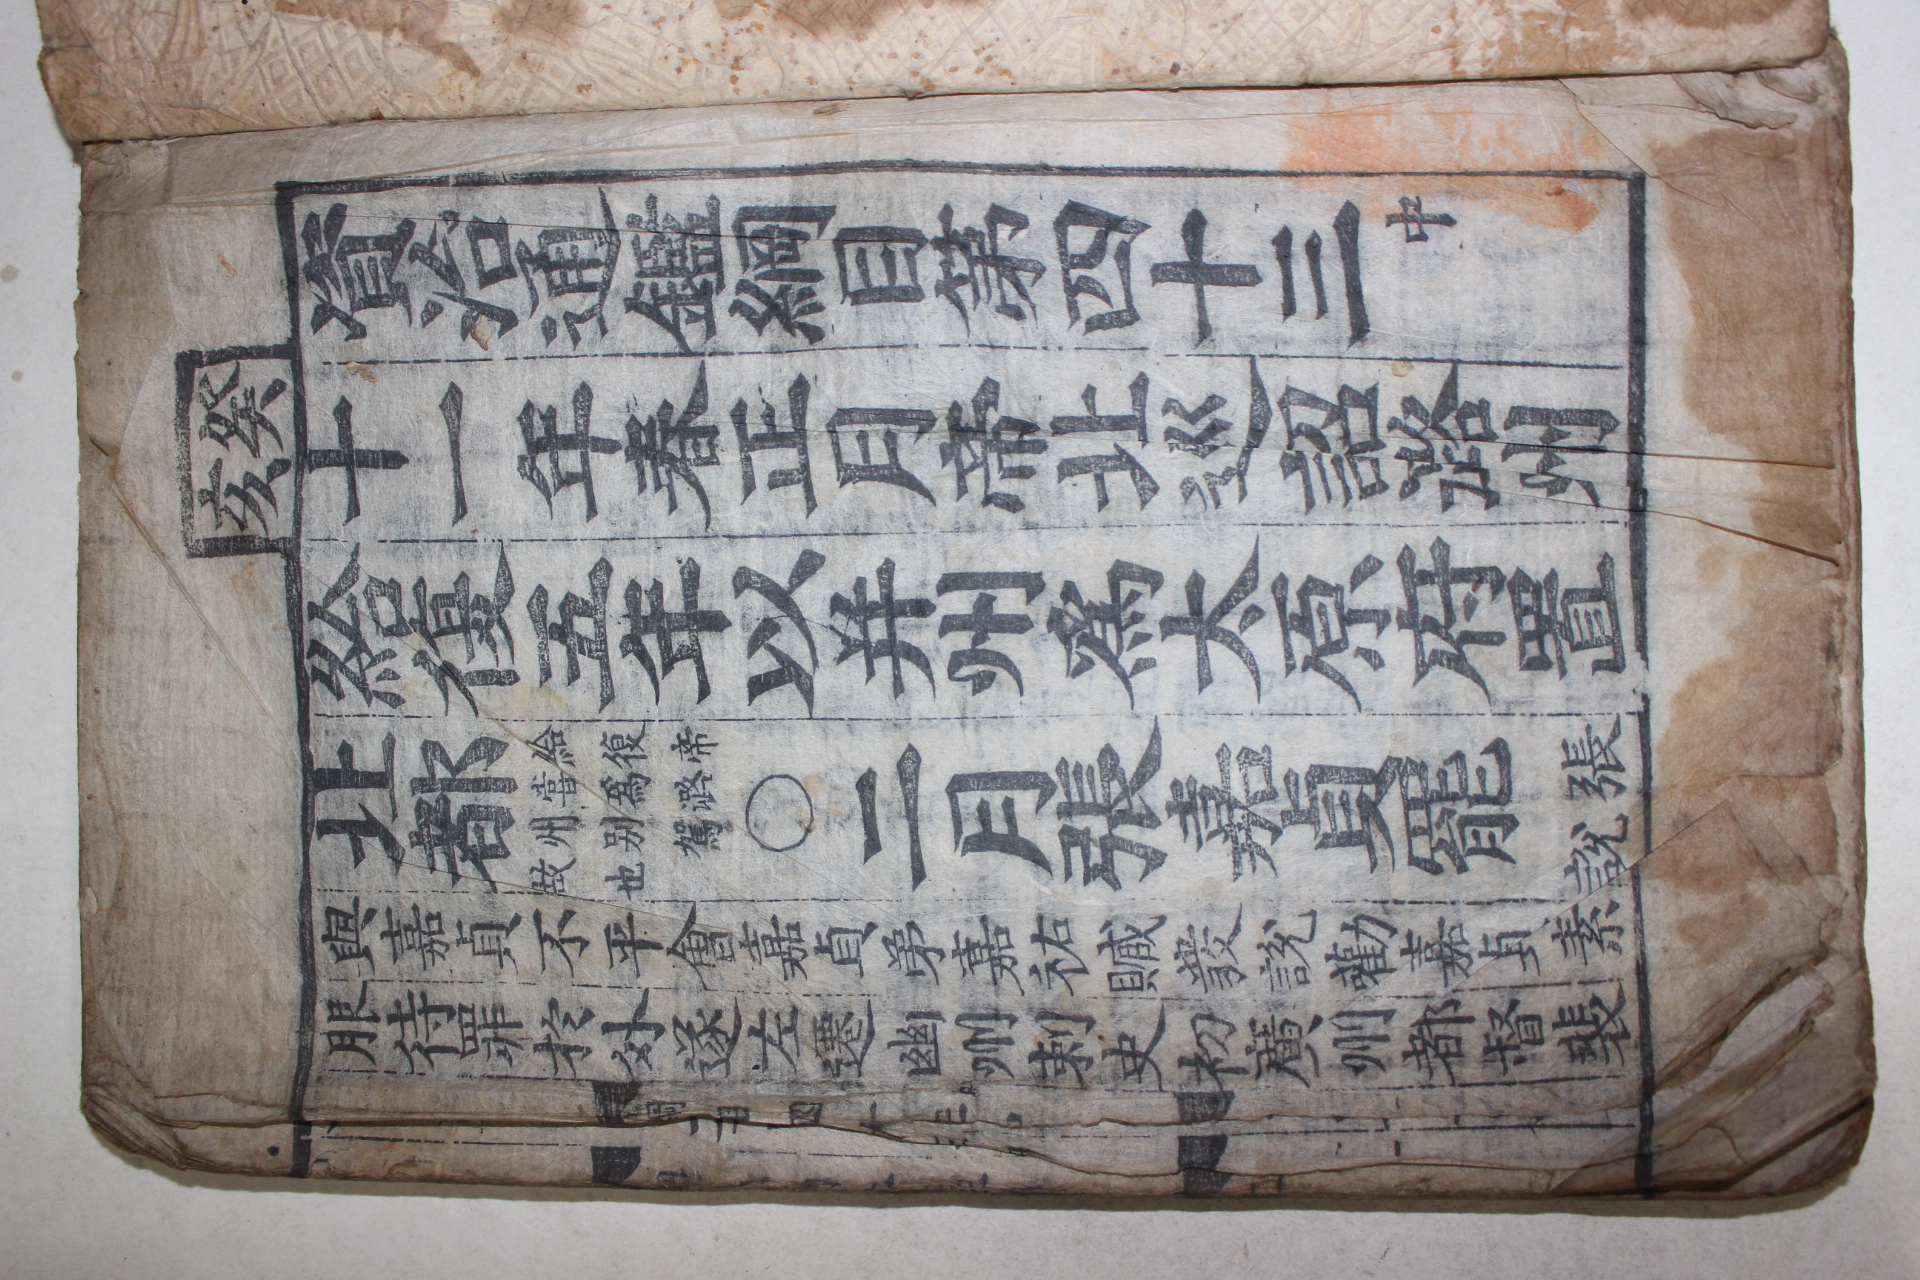 癸亥
資治通鑑綱目第四十三中
十一年春正月帝北巡詔潞州
給復五年以并州爲太原府置
北都給復帝嘗爲潞州别駕故也○二月張嘉貞罷張說
與嘉貞不平會嘉貞弟嘉祐贓發說勸嘉貞素
服待罪於外遂左遷幽州刺史初廣州都督裴